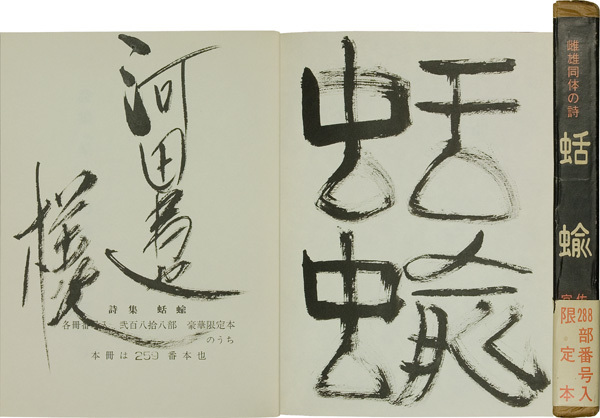 河田
様
詩集 蛞蝓
各冊番 入 弐百八拾八部 豪華限定本
のうち
本冊は 259 番本也
蛞蝓
雌雄同体の詩
蛞蝓
288部番号入
限定本